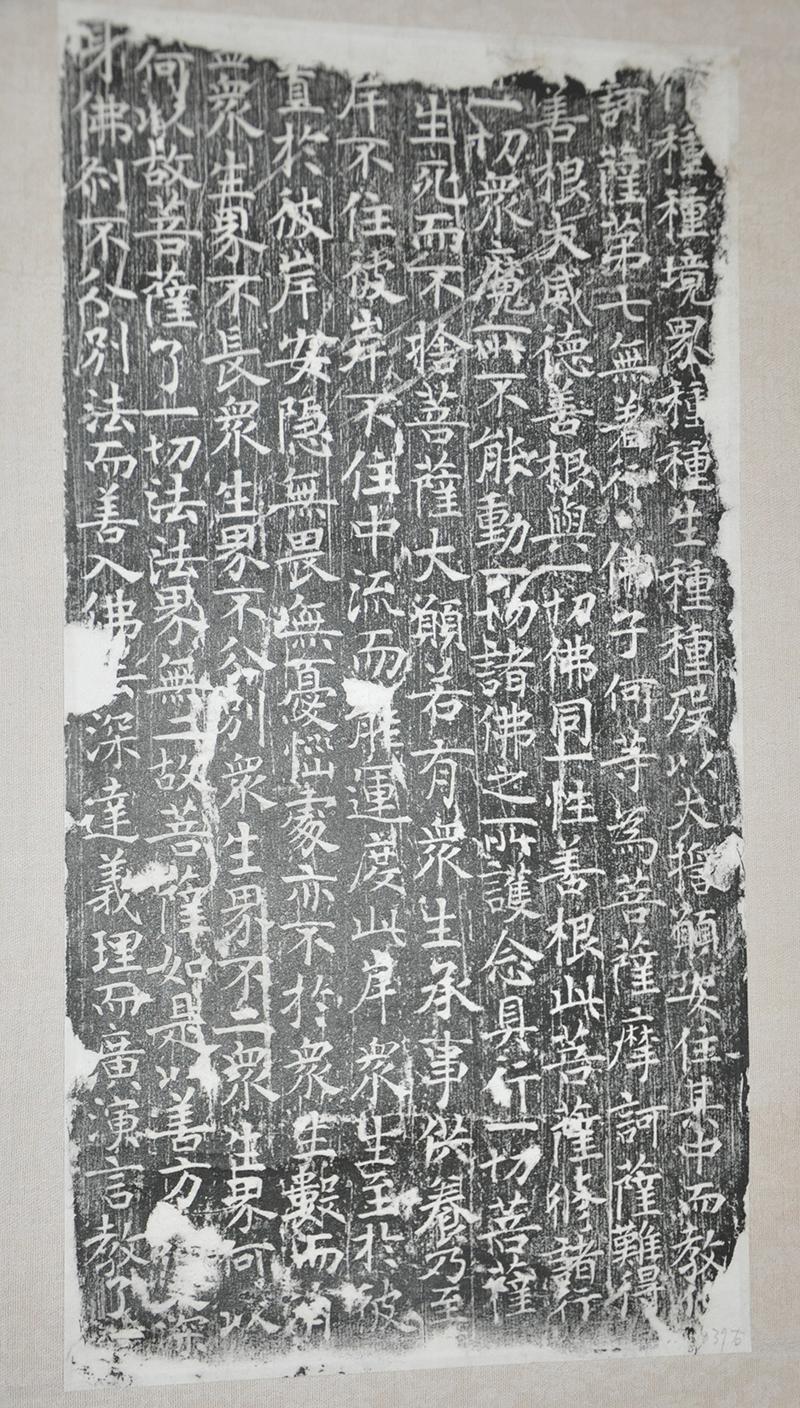 種種境界種種生種種歿以大誓願安住其中而教
訶薩第七無著行佛子何等為菩薩摩訶薩難得
善根大威德善根與一切佛同一性善根此菩薩修諸行
一切衆魔所不能動一切諸佛之所護念具行一切菩薩
生死而不捨菩薩大願若有衆生承事供養乃至
岸不住彼岸不住中流而能運度此岸衆生至於彼
直於彼岸安隱無畏無憂惱處亦不於衆生數而
衆生界不長衆生界不分別衆生界不二衆生界何以
何以故菩薩了一切法法界無二故菩薩如是以善方深
身佛刹不分別法而善入佛法深達義理而廣演言教了
6396